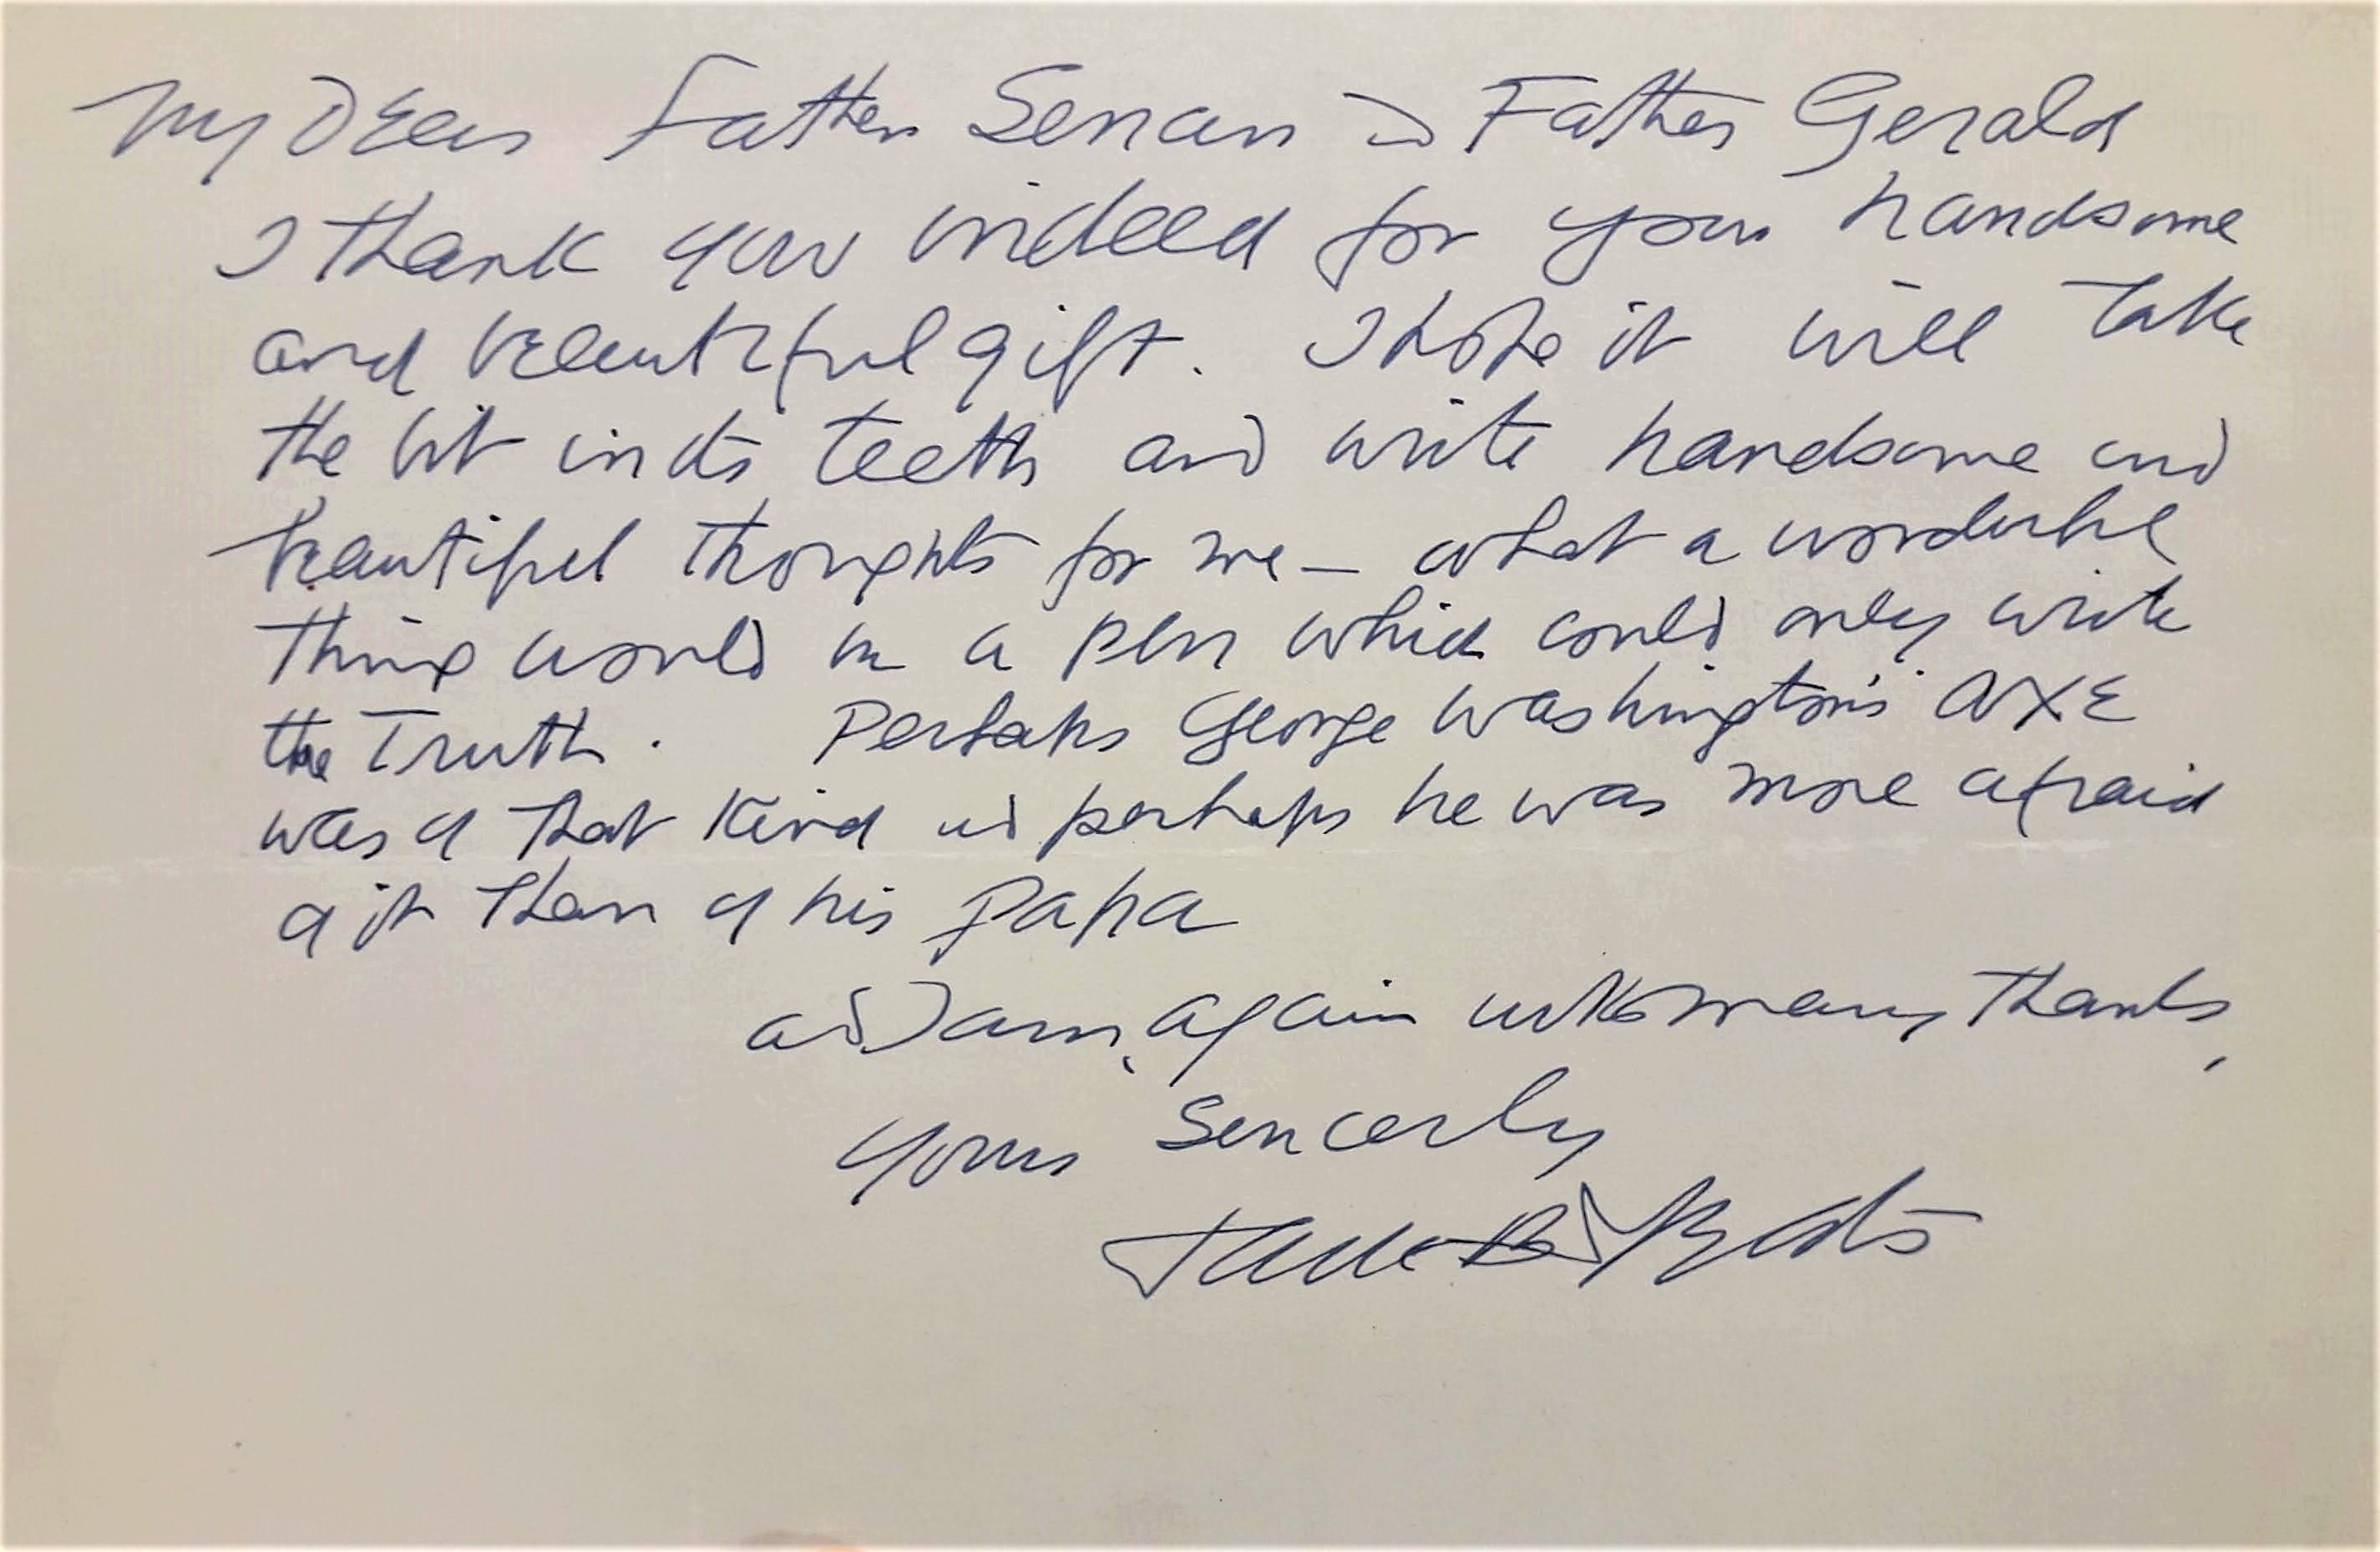 My Dear Father Senan and Father Gerald
I thank you indeed for your handsome
and beautiful gift. I hope it will take
the bit in its teeth and write handsome and
beautiful thoughts for me – what a wonderful
thing would be a pen which could only write
the Truth. Perhaps George Washington's AXE
was of that kind and perhaps he was more afraid
of it than of his papa
and I am, again with many thanks,
Yours Sincerly
Jack B Yeats